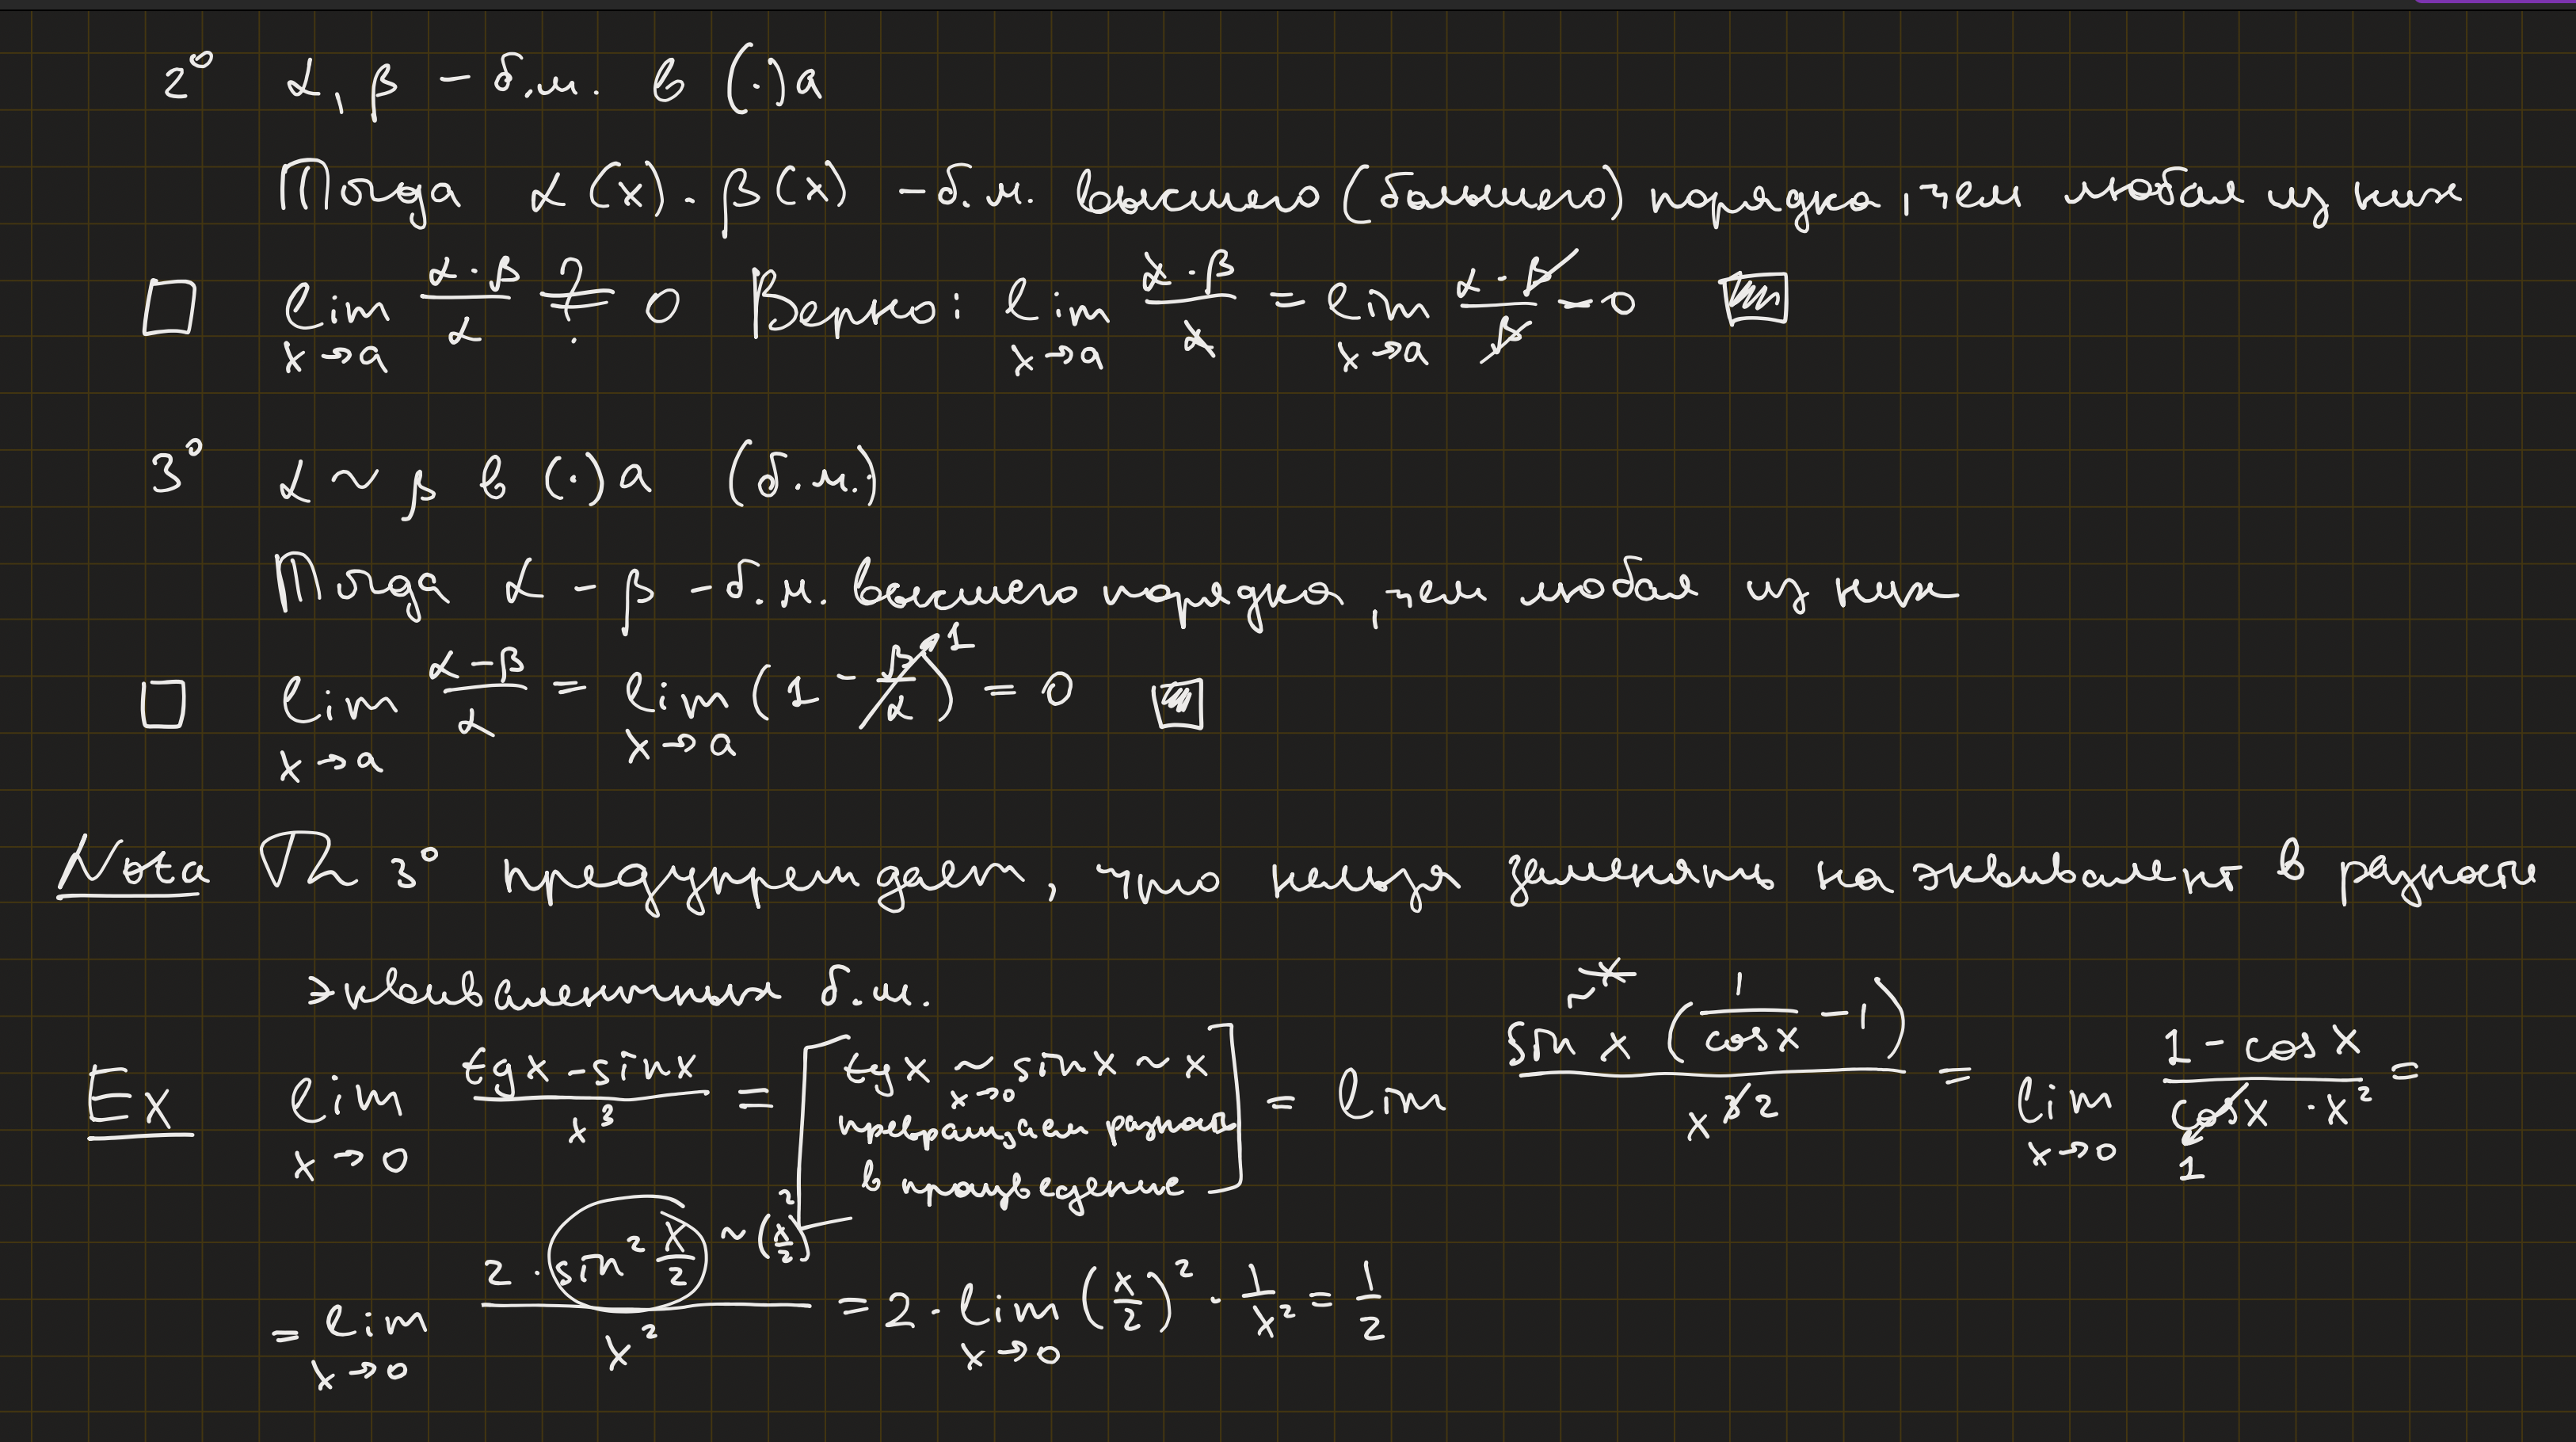 2° α, β – б.м. в (·)a
Тогда α(x)·β(x) – б.м. высшего (большего) порядка, чем любая из них
□ lim x→a (α·β)/α ≟ 0 Верно: lim x→a (α·β)/α = lim x→a (α·β)/β = 0 ■
3° α ~ β в (·)a (б.м.)
Тогда α – β – б.м. высшего порядка, чем любая из них
□ lim x→a (α–β)/α = lim x→a (1 – β/α → 1) = 0 ■
Nota Th 3° предупреждает, что нельзя заменять на эквивалент в разности
эквивалентных б.м.
Ex lim x→0 (tg x – sin x)/x³ = [tg x ~ x→0 sin x ~ x превращаем разность в произведение] = lim (sin x ~x (1/cos x – 1))/x³ ² = lim x→0 (1 – cos x)/(cos x → 1 · x²) =
= lim x→0 (2·sin² x/2 ~ (x/2)²)/x² = 2·lim x→0 (x/2)² · 1/x² = 1/2